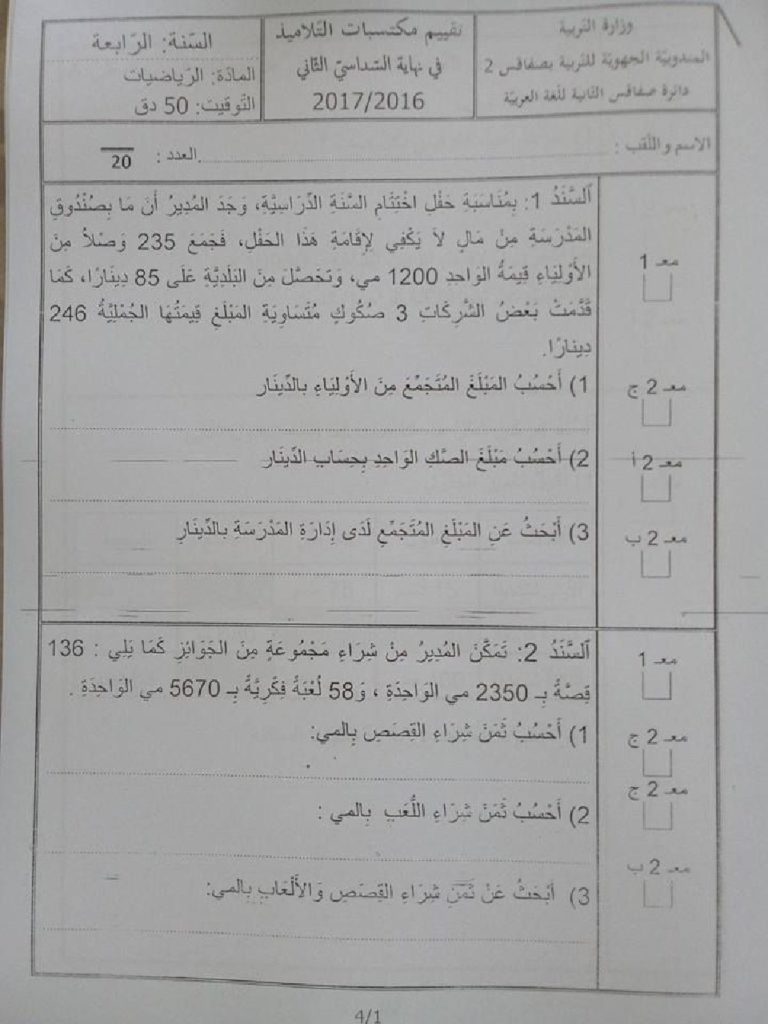 وزارة التربية
المندوبيّة الجهويّة للتربية بصفاقس 2
دائرة صفاقس الثانية للّغة العربيّة
تقييم مكتسبات التلاميذ
في نهاية السّداسيّ الثّاني
2017/2016
السّنة: الرّابعة
المادّة: الرّياضيات
التّوقيت: 50 دق
الاسم واللّقب : ........................ العدد : 20
السَّنَدُ 1: بِمُنَاسَبَةِ حَفْلِ اخْتِتَامِ السَّنَةِ الدِّرَاسِيَّةِ، وَجَدَ المُدِيرُ أَنَ مَا بِصُنْدُوقِ
المَدْرَسَةِ مِنْ مَالٍ لاَ يَكْفِي لِإِقَامَةِ هَذَا الحَفْلِ، فَجَمَعَ 235 وَصْلاً مِنَ
الأَوْلِيَاءِ قِيمَةُ الوَاحِدِ 1200 مي، وَتَحَصَّلَ مِنَ البَلَدِيَّةِ عَلَى 85 دِينَارًا، كَمَا
قَدَّمَتْ بَعْضُ الشَّرِكَاتِ 3 صُكُوكٍ مُتَسَاوِيَةِ المَبْلَغِ قِيمَتُهَا الجُمْلِيَّةُ 246
دِينَارًا.
معـ 1
1) أَحْسُبُ المَبْلَغَ المُتَجَمِّعَ مِنَ الأَوْلِيَاءِ بالدِّينَار
معـ 2 ج
2) أَحْسُبُ مَبْلَغَ الصَّكِ الوَاحِدِ بِحِسَابِ الدِّينَار
معـ 2 أ
3) أَبْحَثُ عَنِ المَبْلَغِ المُتَجَمِّعِ لَدَى إِدَارَةِ المَدْرَسَةِ بالدِّينَارِ
معـ 2 ب
السَّنَدُ 2: تَمَكَّنَ المُدِيرُ مِنْ شِرَاءِ مَجْمُوعَةٍ مِنَ الجَوَائِزِ كَمَا يَلِي : 136
قِصَّةً بِـ 2350 مي الوَاحِدَةِ ، وَ58 لُعْبَةً فِكْرِيَّةً بِـ 5670 مي الوَاحِدَةِ .
معـ 1
1) أَحْسُبُ ثَمَنَ شِرَاءِ القِصَصِ بِالمي:
معـ 2 ج
معـ 2 ج
2) أَحْسُبُ ثَمَنَ شِرَاءِ اللُّعَبِ بِالمي :
معـ 2 ب
3) أَبْحَثُ عَنْ ثَمَنِ شِرَاءِ القِصَصِ وَالأَلْعَابِ بالمي:
4/1